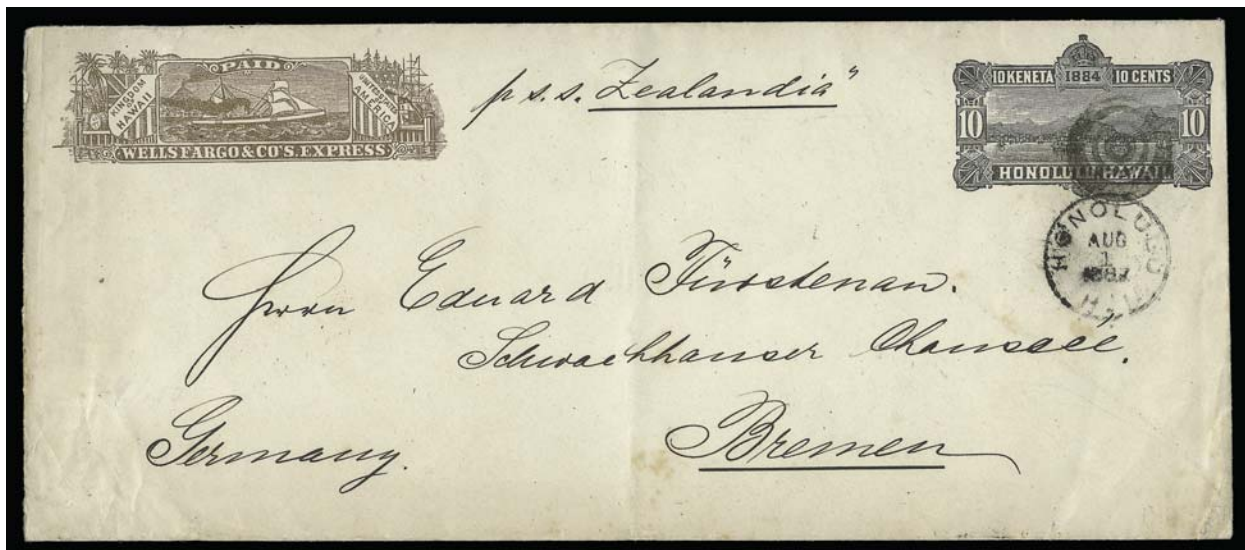 PAID
KINGDOM OF HAWAII
UNITED STATES AMERICA
WELLS FARGO & CO'S. EXPRESS
p s.s. Zealandia"
10 KENETA 1884 10 CENTS
10 10
HONOLULU HAWAII
HONOLULU
AUG
1
H.I.
Herrn Eduard Fürstenau.
Schwachhauser Chaussee.
Bremen
Germany.